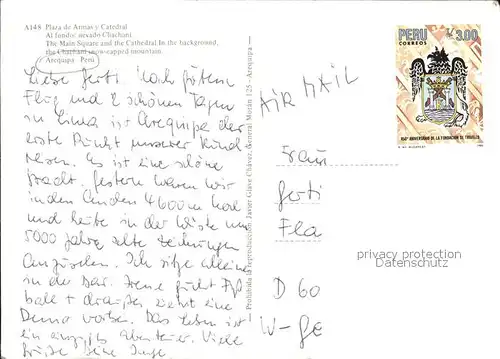 A148 Plaza de Armas y Catedral
Al fondo: nevado Chachani
The Main Square and the Cathedral. In the background,
the Chachani snow-capped mountain.
Arequipa - Perú
Liebe Gerti! Nach gutem
Flug und 2 schönen Tagen
in Lima ist Arequipa der
erste Punkt unserer Rund
reisen. Es ist eine schöne
Stadt. Gestern waren wir
in den Anden 4600 m hoch
und heute in der Wüste um
5000 Jahre alte Zeichnungen
anzusehen. Ich sitze allein
in der Bar. Irene guckt Fuß
ball + draußen zieht eine
Demo vorbei. Das Leben ist
ein einziges Abenteuer. Viele
Grüße Deine Inge
Prohibida la reproducción: Javier Glave Chávez, General Morán 125 - Arequipa
AIR MAIL
PERU
CORREOS
I/. 3.00
450º ANIVERSARIO DE LA FUNDACION DE TRUJILLO
Frau
Gerti
Fla
D 60
W-Ge
privacy protection
Datenschutz